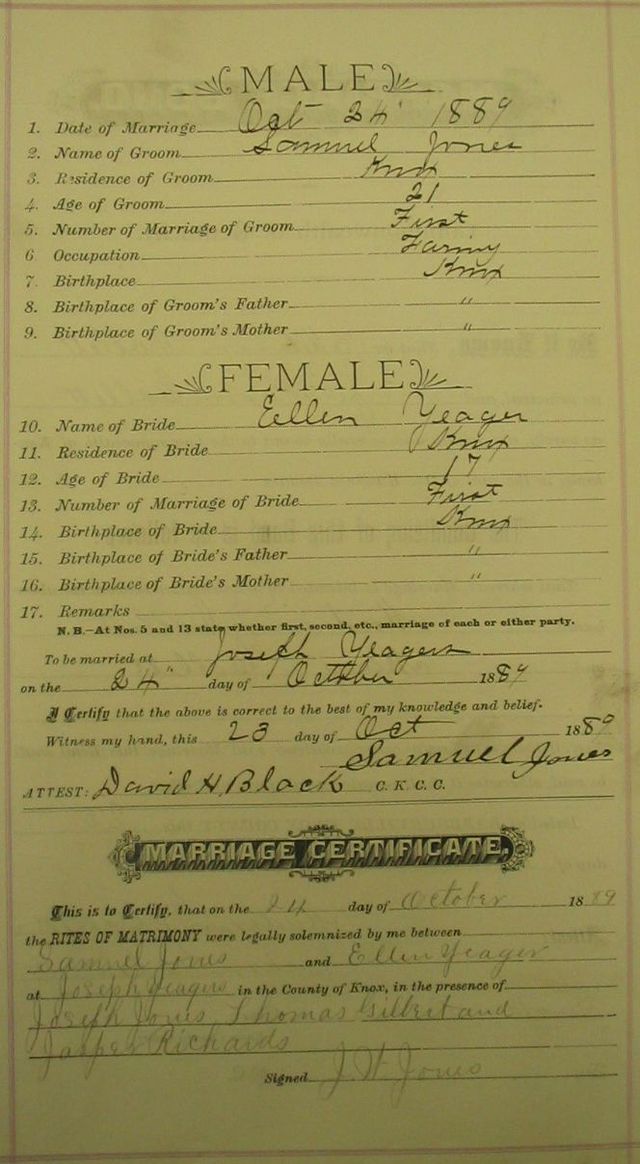 MALE
1. Date of Marriage Oct 24" 1889
2. Name of Groom Samuel Jones
3. Residence of Groom Knox
4. Age of Groom 21
5. Number of Marriage of Groom First
6 Occupation Farming
7. Birthplace Knox
8. Birthplace of Groom's Father "
9. Birthplace of Groom's Mother "
FEMALE
10. Name of Bride Ellen Yeager
11. Residence of Bride Knox
12. Age of Bride 17
13. Number of Marriage of Bride First
14. Birthplace of Bride Knox
15. Birthplace of Bride's Father "
16. Birthplace of Bride's Mother "
17. Remarks
N. B.—At Nos. 5 and 13 state whether first, second, etc., marriage of each or either party.
To be married at Joseph Yeagers
on the 24" day of October 1889
I Certify that the above is correct to the best of my knowledge and belief.
Witness my hand, this 23 day of Oct 1889
Samuel Jones
ATTEST: David H. Black C. K. C. C.
MARRIAGE CERTIFICATE.
This is to Certify, that on the 24 day of October 1889
the RITES OF MATRIMONY were legally solemnized by me between
Samuel Jones and Ellen Yeager
at Joseph Yeagers in the County of Knox, in the presence of
Joseph Jones, Thomas Gilbert and
Jasper Richards
Signed J W Jones